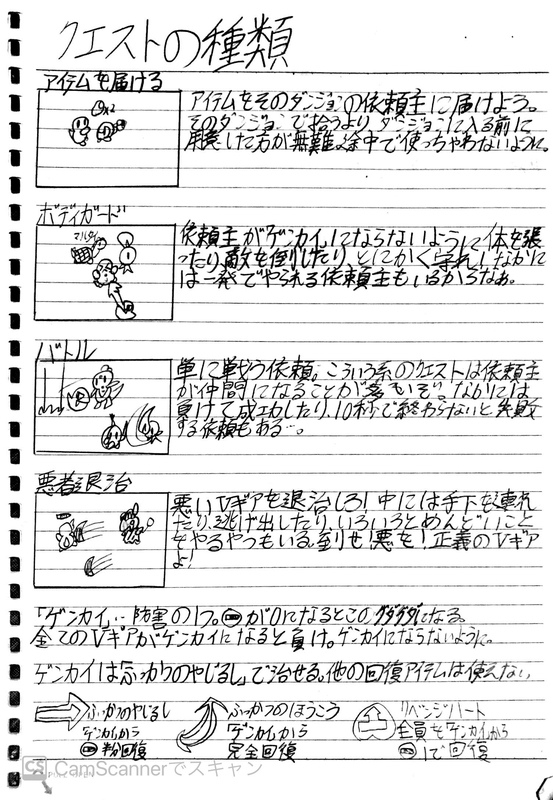 クエストの種類
アイテムを届ける
アイテムをそのダンジョンの依頼主に届けよう。
そのダンジョンで拾うより、ダンジョンに入る前に
用意した方が無難。途中で使っちゃわないように。
ボディガード
依頼主が「ゲンカイ」にならないように体を張
ったり、敵を倒したり、とにかく守れ!なかに
は一発でやられる依頼主もいるからなぁ。
バトル
単に戦う依頼。こういう系のクエストは依頼主
が仲間になることが多いぞ。なかには
負けて成功したり、10秒で終わらないと失敗
する依頼もある…。
悪者退治
悪いVギアを退治しろ!中には手下を連れ
たり、逃げ出したり、いろいろとめんどいこと
をやるやつもいる。倒せ!悪を!正義のVギア
よ!
「ゲンカイ」…障害の1つ。が0になるとこの、グダグダになる。
全てのVギアがゲンカイになると負け。ゲンカイにならないように。
ゲンカイは「ふっかつのやじるし」で治せる。他の回復アイテムは使えない
ふっかつのやじるし
ゲンカイから
回復
ふっかつのほうこう
ゲンカイから
完全回復
リベンジハート
全員をゲンカイから
1で回復
CS CamScannerでスキャン